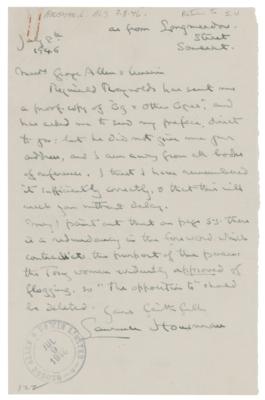 as from Longmeadow
Street
Somerset
July 8th
1946
George Allen & Unwin
Reginald Reynolds has sent me
a proof-copy of "Og & Other Ogres", and
has asked me to send my preface, direct
to you: but he did not give me your
address, and I am away from all books
of reference. I think I have remembered
it sufficiently correctly, so that this will
reach you without delay.
May I point out that on page 53. there
is a redundancy in the foreword which
contradicts the purport of the
the Tory women evidently approved of
flogging, so "The opposition to" should
be deleted.
Yours faithfully
Laurence Housman
GEORGE ALLEN & UNWIN LIMITED
JUL
9
1946
122